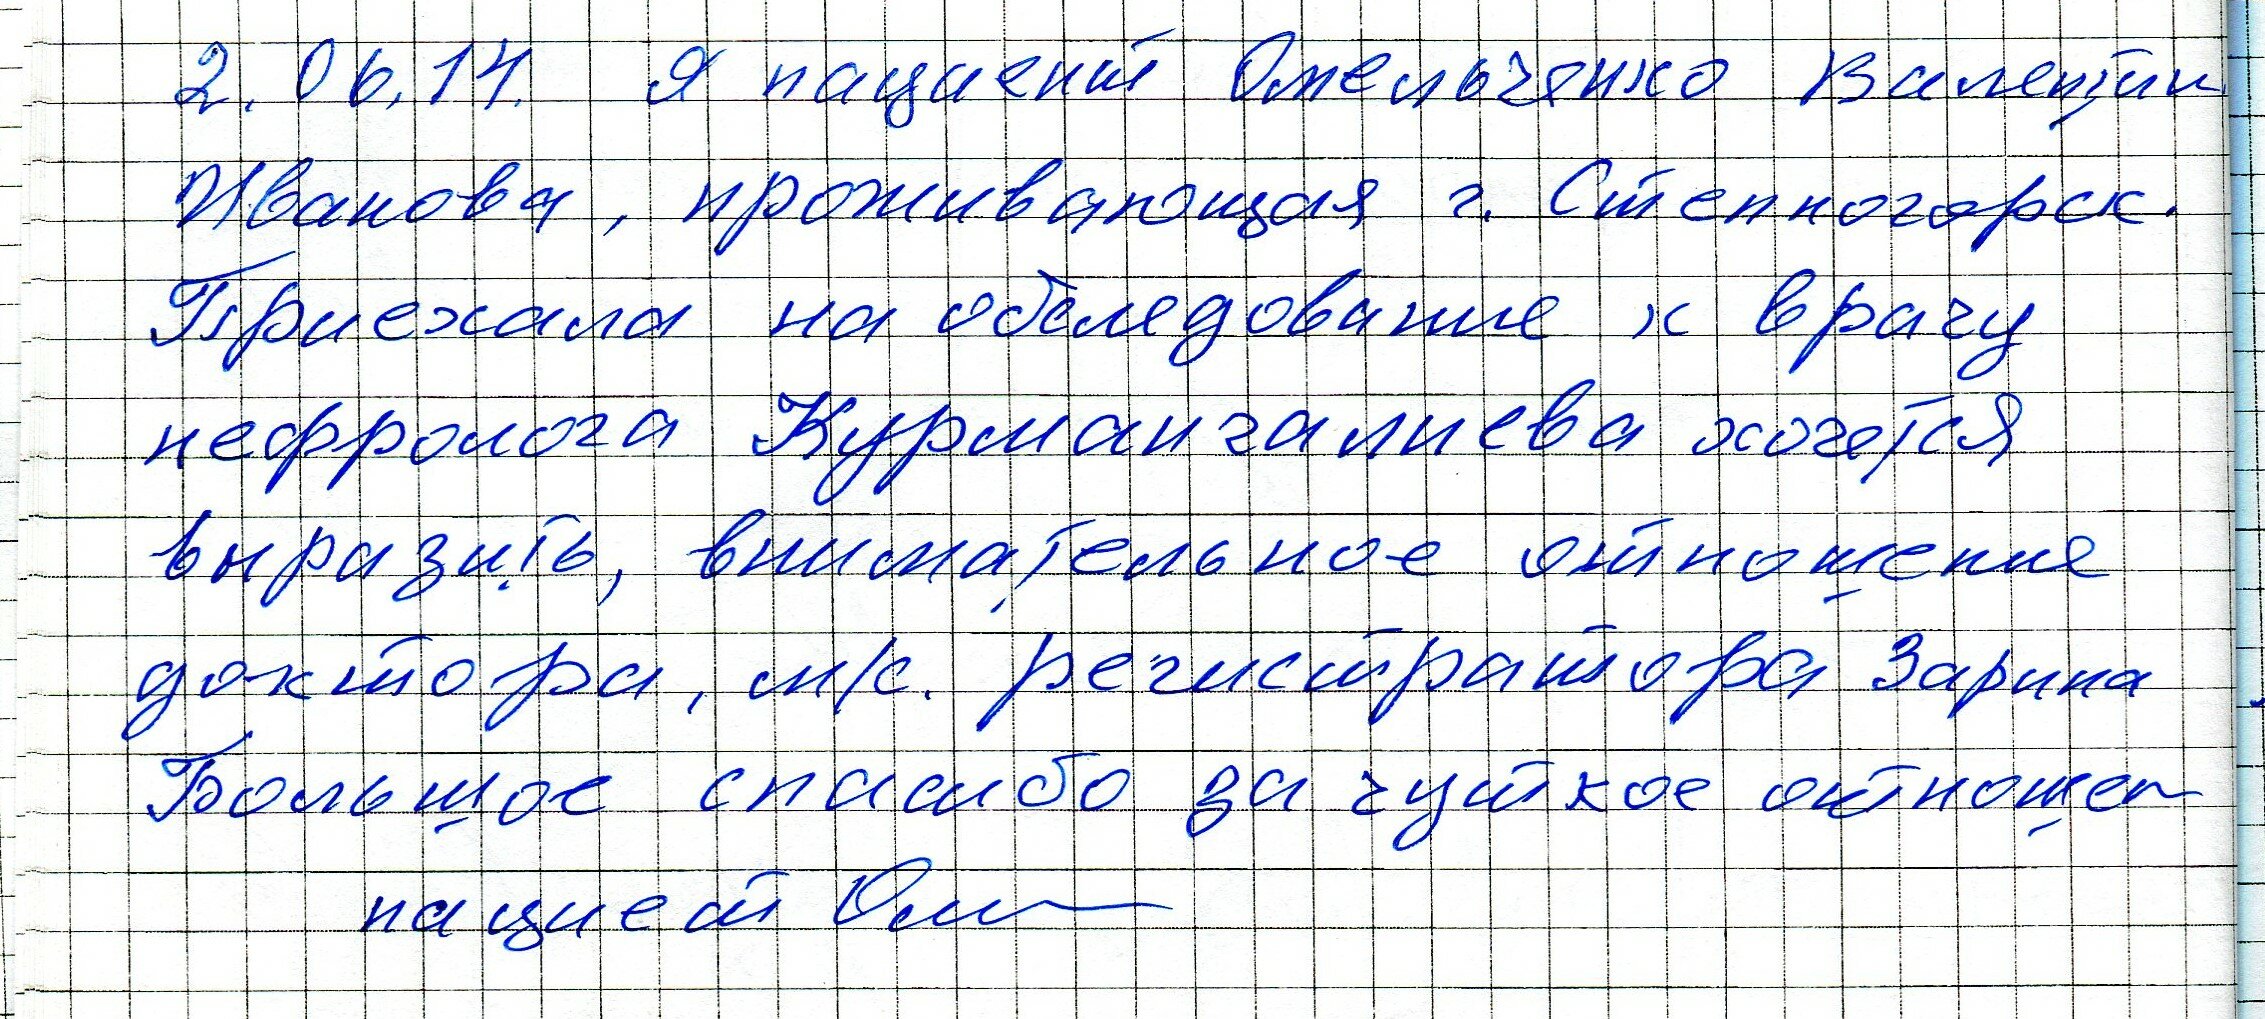 2.06.14. Я пациент Омельчянко Валентин
Иванова, проживающая г. Степногорск.
Приехала на обследование к врачу
нефролога Курмангалиева хочется
выразить, внимательное отношение
доктора, м/с. регистратора Зарина
Большое спасибо за чуткое отношен
пациет Ом